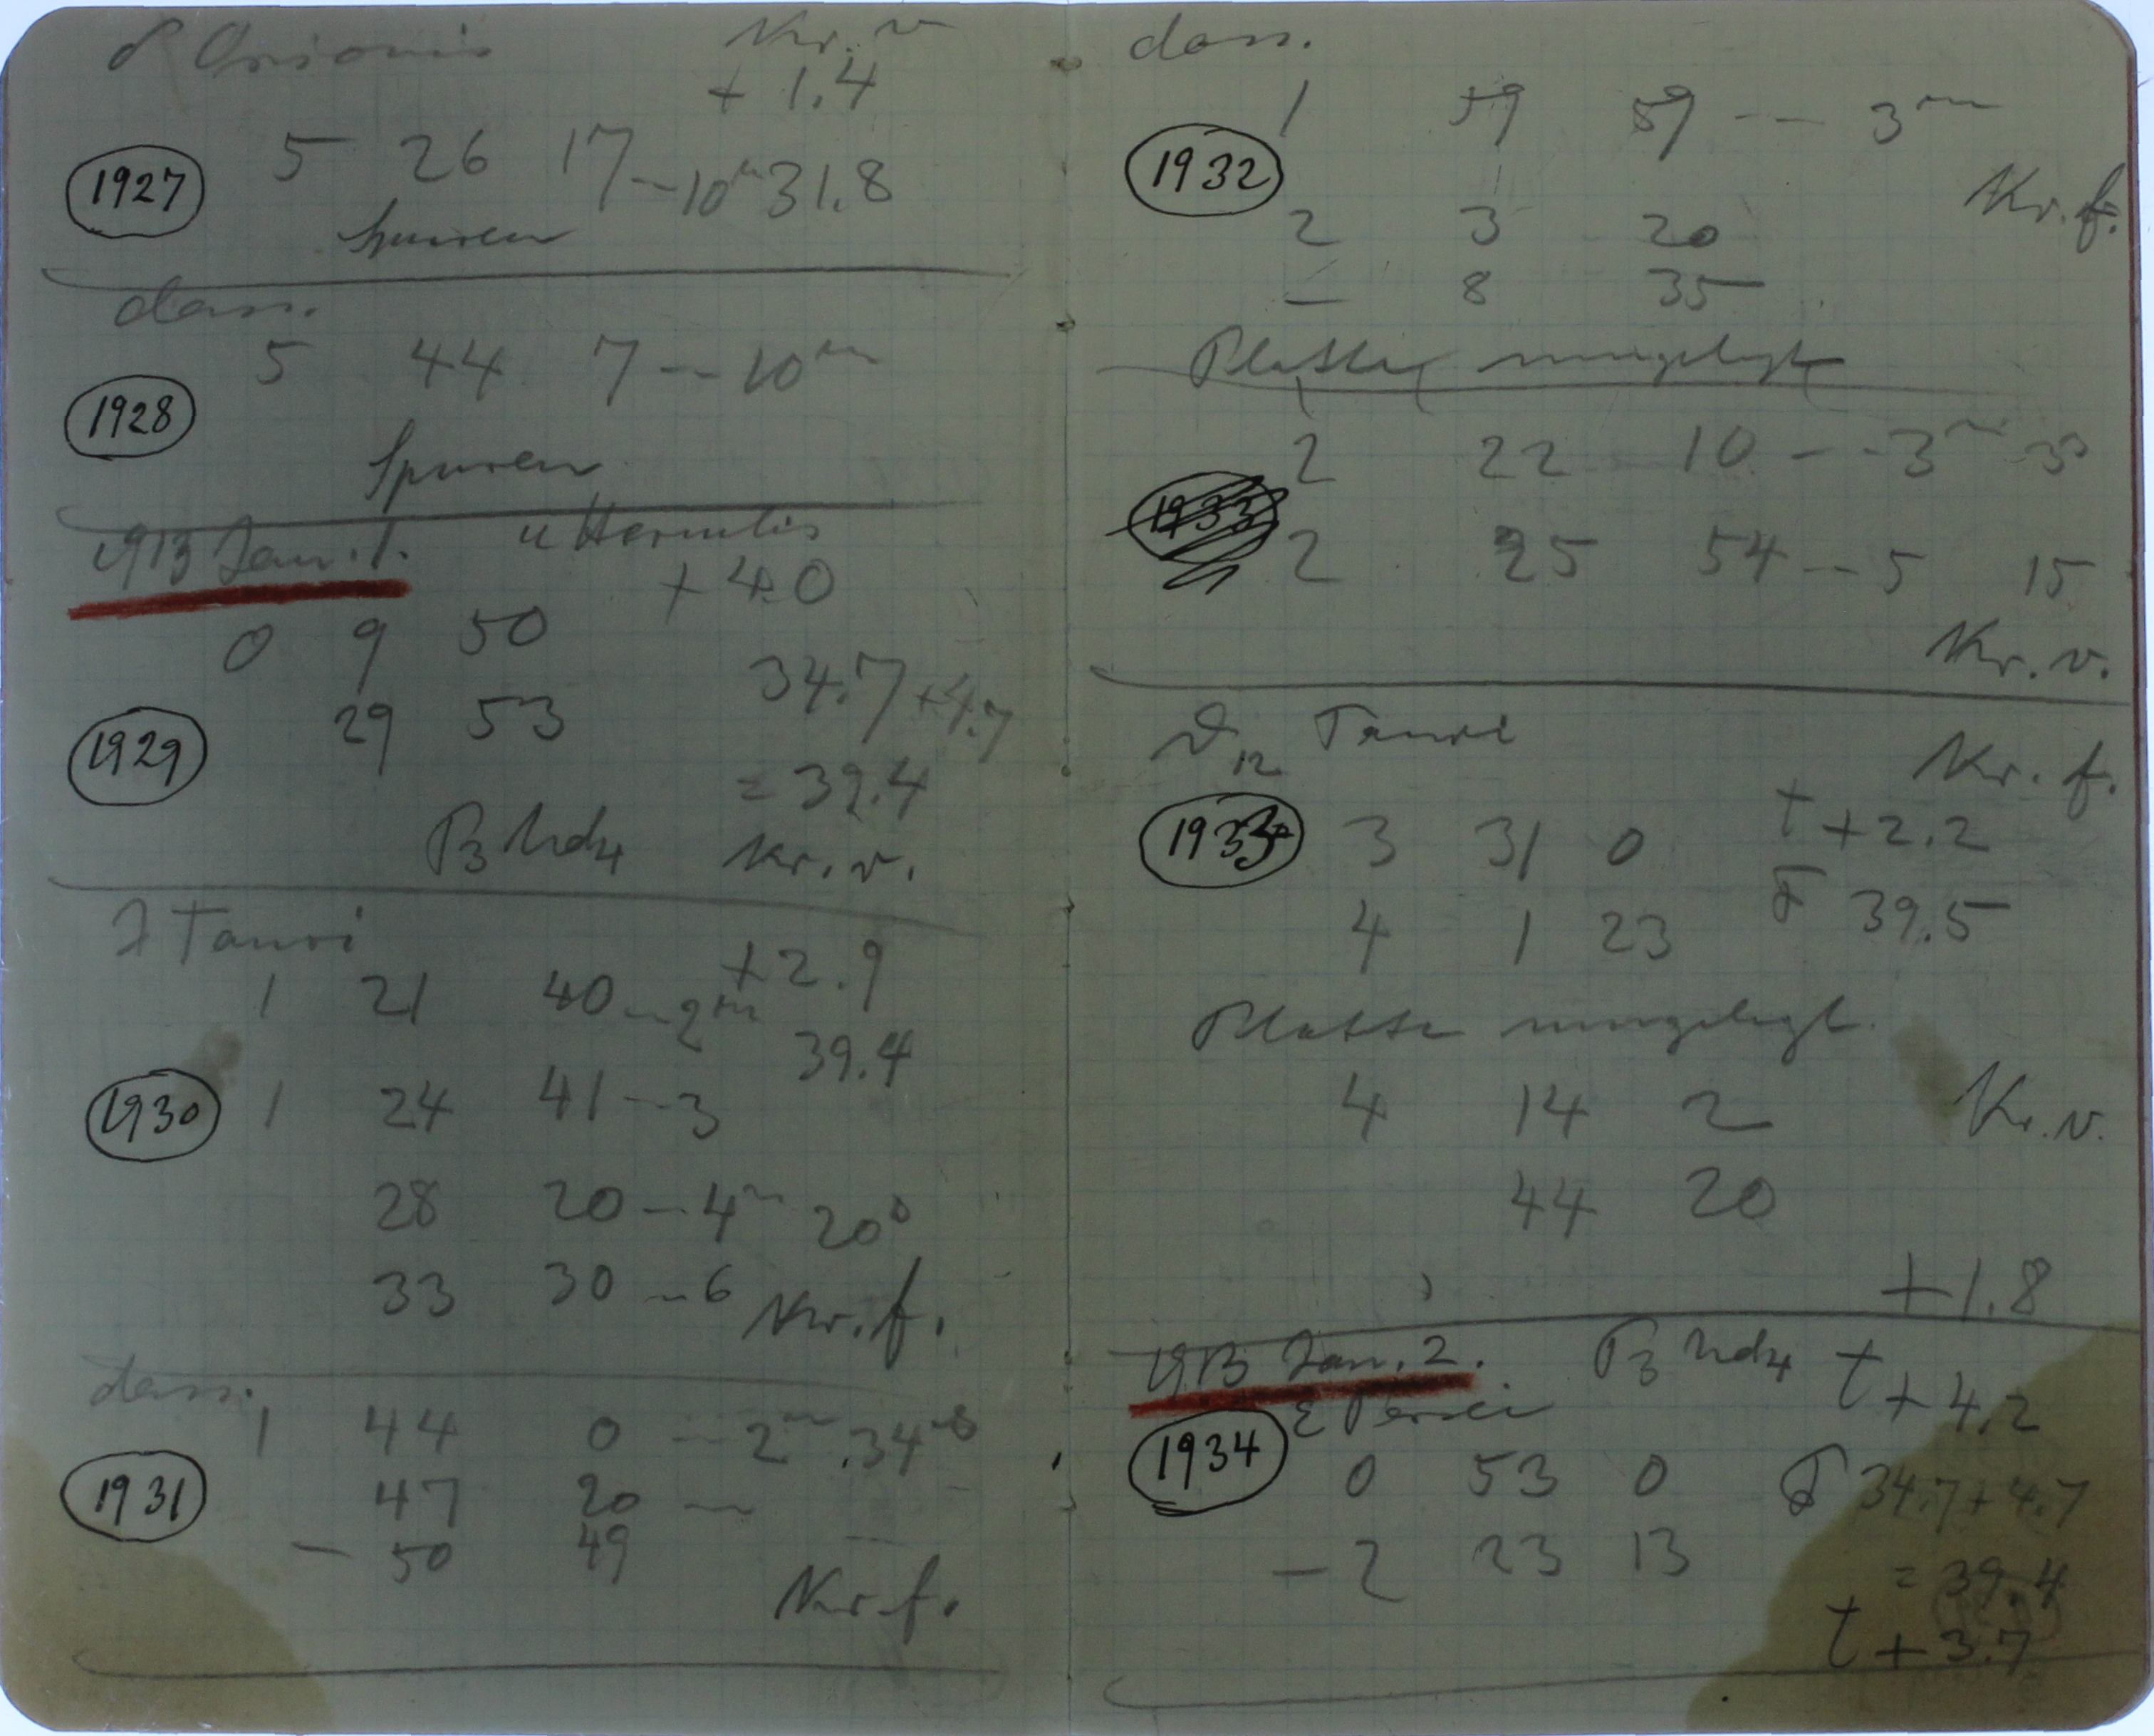 δ Orionis Kr. v
+ 1.4
1927 5 26 17 — 10ᵐ 31.8
Spuren
dass.
1928 5 44 7 — 10ᵐ
Spuren
1913 Jan. 1. u Herculis
+ 4.0
0 9 50
34.7 + 4.7
1929 29 53
= 39.4
Kr. v.
λ Tauri
+2.9
1 21 40 — 2ᵐ
39.4
1930 1 24 41 — 3
28 20 — 4ᵐ 20ˢ
33 30 — 6 Kr. f.
dass.
1 44 0 — 2ᵐ 34ˢ
1931 47 20 —
— 50 49
Kr. f.
dass.
1 59 59 — 3ᵐ
1932
Kr. f.
2 3 20
— 8 35
Platte umgelegt
2 22 10 — 3ᵐ
1933
2 25 54 — 5 15
Kr. v.
Tauri
Kr. f.
3 31 0 t + 2.2
4 1 23 F 39.5
Platte umgelegt.
4 14 2 Kr. v.
44 20
+1.8
1913 Jan. 2. t + 4.2
ε Persei
1934 0 53 0 F 34.7 + 4.7
— 2 23 13 = 39.4
t + 3.7